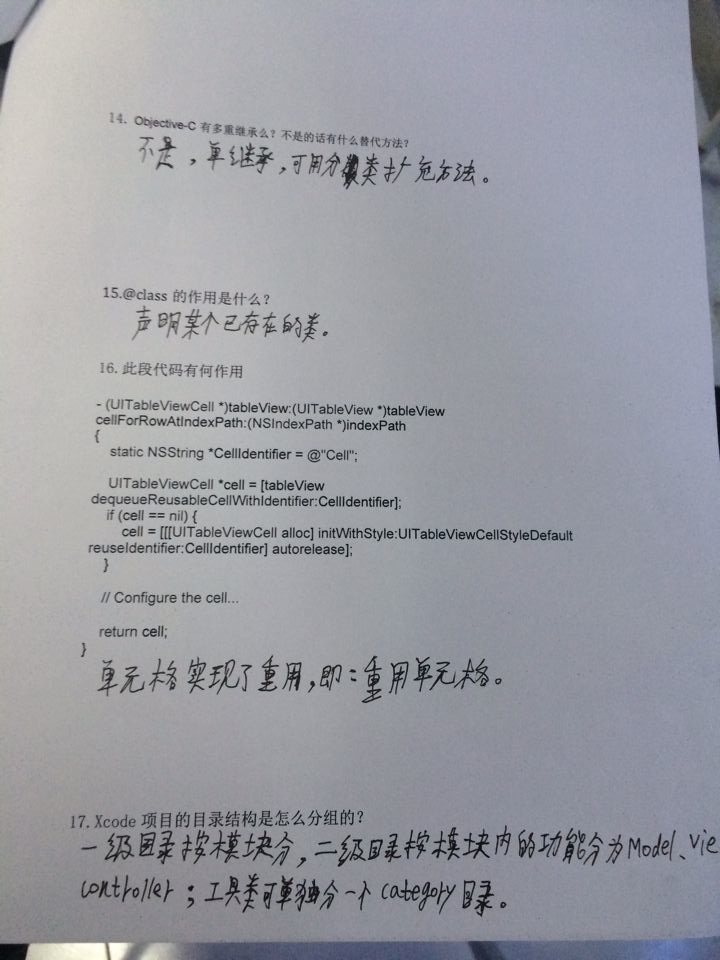 14. Objective-C 有多重继承么？不是的话有什么替代方法？
不是，单继承，可用分类扩充方法。
15.@class 的作用是什么？
声明某个已存在的类。
16. 此段代码有何作用
- (UITableViewCell *)tableView:(UITableView *)tableView
cellForRowAtIndexPath:(NSIndexPath *)indexPath
{
static NSString *CellIdentifier = @"Cell";
UITableViewCell *cell = [tableView
dequeueReusableCellWithIdentifier:CellIdentifier];
if (cell == nil) {
cell = [[[UITableViewCell alloc] initWithStyle:UITableViewCellStyleDefault
reuseIdentifier:CellIdentifier] autorelease];
}
// Configure the cell...
return cell;
}
单元格实现了重用，即：重用单元格。
17. Xcode 项目的目录结构是怎么分组的？
一级目录按模块分，二级目录按模块内的功能分为Model、Vie
controller；工具类可单独分一个category目录。